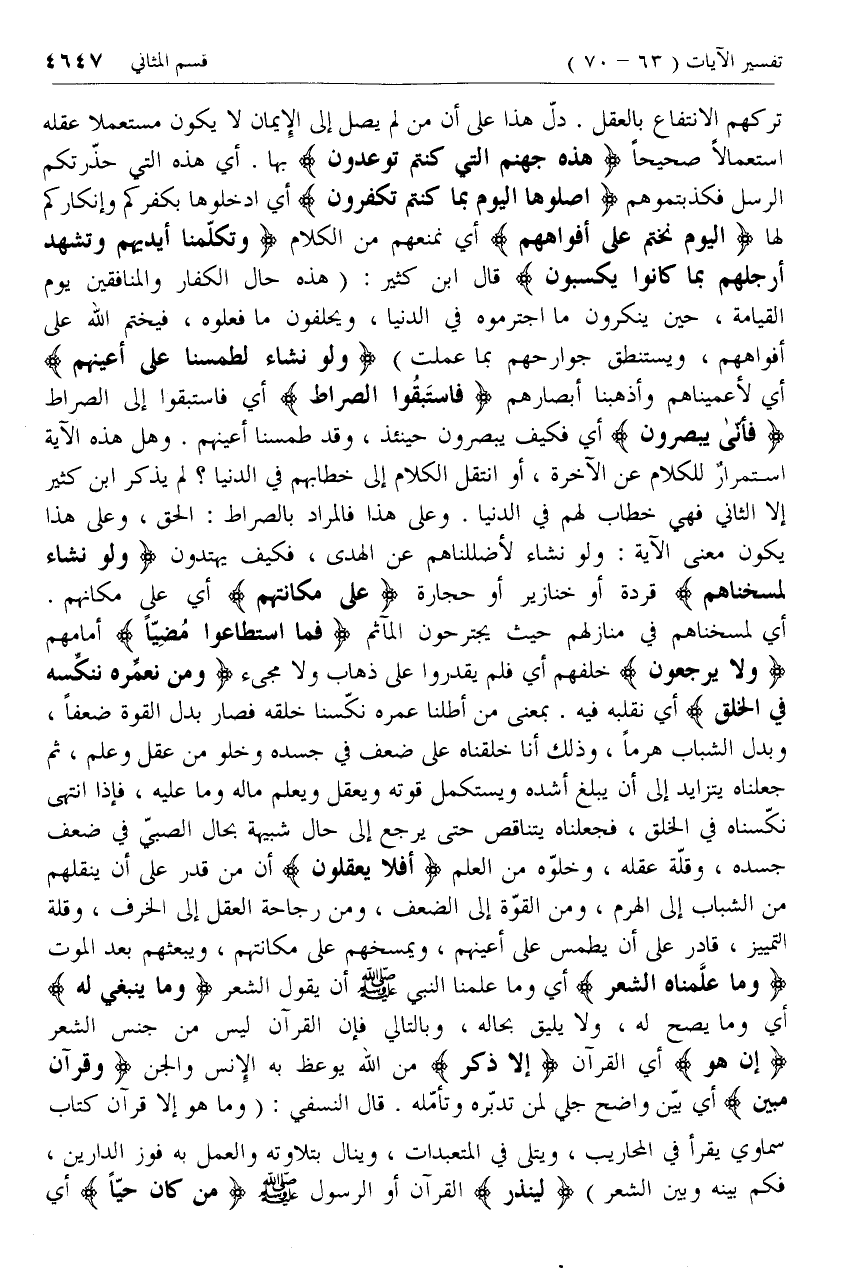 تفسير الآيات ( ٦٣ – ٧٠ ) قسم المثاني ٤٦٤٧
تركهم الانتفاع بالعقل . دلّ هذا على أن من لم يصل إلى الإيمان لا يكون مستعملا عقله
استعمالاً صحيحاً ﴿ هذه جهنم التي كنتم توعدون ﴾ بها . أي هذه التي حذّرتكم
الرسل فكذبتموهم ﴿ اصلوها اليوم بما كنتم تكفرون ﴾ أي ادخلوها بكفركم وإنكاركم
لها ﴿ اليوم نختم على أفواههم ﴾ أي نمنعهم من الكلام ﴿ وتكلّمنا أيديهم وتشهد
أرجلهم بما كانوا يكسبون ﴾ قال ابن كثير : ( هذه حال الكفار والمنافقين يوم
القيامة ، حين ينكرون ما اجترموه في الدنيا ، ويحلفون ما فعلوه ، فيختم الله على
أفواههم ، ويستنطق جوارحهم بما عملت ) ﴿ ولو نشاء لطمسنا على أعينهم ﴾
أي لأعميناهم وأذهبنا أبصارهم ﴿ فاستَبقُوا الصراط ﴾ أي فاستبقوا إلى الصراط
﴿ فأنّىٰ يبصرون ﴾ أي فكيف يبصرون حينئذ ، وقد طمسنا أعينهم . وهل هذه الآية
استمرارٌ للكلام عن الآخرة ، أو انتقل الكلام إلى خطابهم في الدنيا ؟ لم يذكر ابن كثير
إلا الثاني فهي خطاب لهم في الدنيا . وعلى هذا فالمراد بالصراط : الحق ، وعلى هذا
يكون معنى الآية : ولو نشاء لأضللناهم عن الهدى ، فكيف يهتدون ﴿ ولو نشاء
لمسخناهم ﴾ قردة أو خنازير أو حجارة ﴿ على مكانتهم ﴾ أي على مكانهم .
أي لمسخناهم في منازلهم حيث يجترحون المآثم ﴿ فما استطاعوا مُضيّاً ﴾ أمامهم
﴿ ولا يرجعون ﴾ خلفهم أي فلم يقدروا على ذهاب ولا مجيء ﴿ ومن نعمِّره ننكِّسه
في الخلق ﴾ أي نقلبه فيه . بمعنى من أطلنا عمره نكّسنا خلقه فصار بدل القوة ضعفاً ،
وبدل الشباب هرماً ، وذلك أنا خلقناه على ضعف في جسده وخلو من عقل وعلم ، ثم
جعلناه يتزايد إلى أن يبلغ أشده ويستكمل قوته ويعقل ويعلم ماله وما عليه ، فإذا انتهى
نكّسناه في الخلق ، فجعلناه يتناقص حتى يرجع إلى حال شبيهة بحال الصبيّ في ضعف
جسده ، وقلّة عقله ، وخلوّه من العلم ﴿ أفلا يعقلون ﴾ أن من قدر على أن ينقلهم
من الشباب إلى الهرم ، ومن القوّة إلى الضعف ، ومن رجاحة العقل إلى الخرف ، وقلة
التمييز ، قادر على أن يطمس على أعينهم ، ويمسخهم على مكانتهم ، ويبعثهم بعد الموت
﴿ وما علَّمناه الشعر ﴾ أي وما علمنا النبي ﷺ أن يقول الشعر ﴿ وما ينبغي له ﴾
أي وما يصح له ، ولا يليق بحاله ، وبالتالي فإن القرآن ليس من جنس الشعر
﴿ إن هو ﴾ أي القرآن ﴿ إلا ذكر ﴾ من الله يوعظ به الإنس والجن ﴿ وقرآن
مبين ﴾ أي بيّن واضح جلي لمن تدبّره وتأمّله . قال النسفي : ( وما هو إلا قرآن كتاب
سماوي يقرأ في المحاريب ، ويتلى في المتعبدات ، وينال بتلاوته والعمل به فوز الدارين ،
فكم بينه وبين الشعر ) ﴿ لينذر ﴾ القرآن أو الرسول ﷺ ﴿ من كان حيّاً ﴾ أي